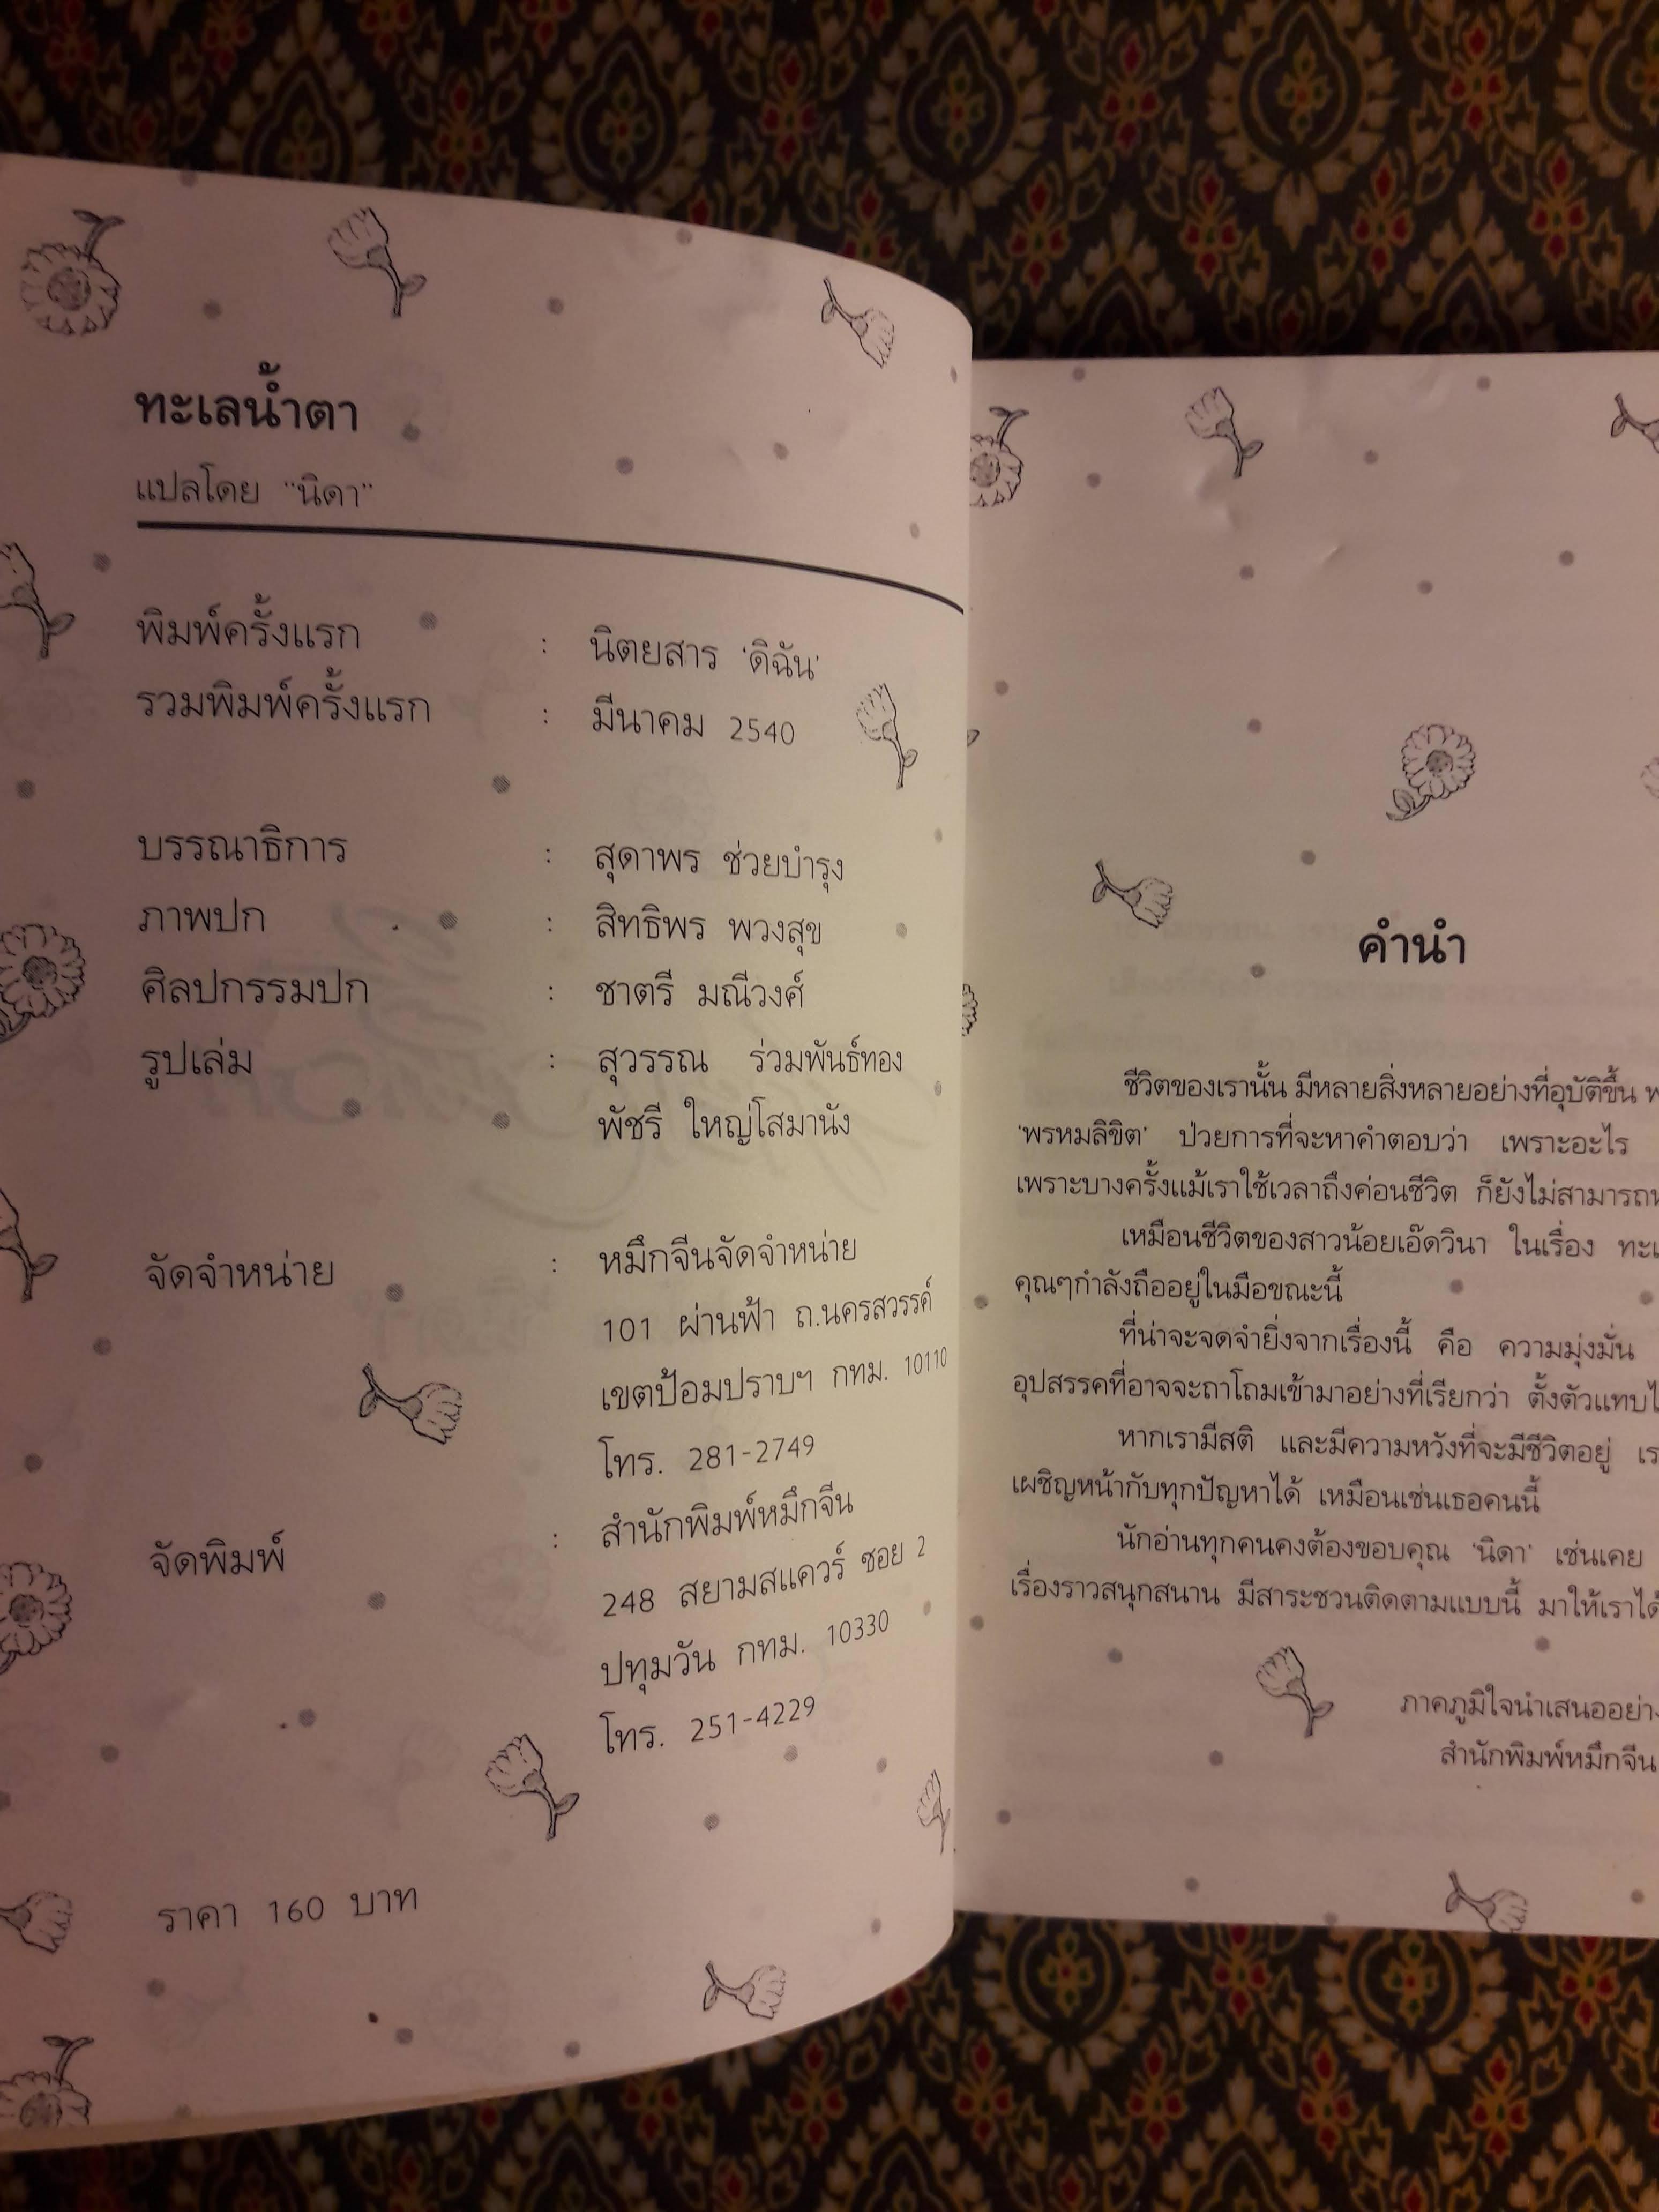 ทะเลน้ำตา
แปลโดย "นิดา"
พิมพ์ครั้งแรก : นิตยสาร 'ดิฉัน'
รวมพิมพ์ครั้งแรก : มีนาคม 2540
บรรณาธิการ : สุดาพร ช่วยบำรุง
ภาพปก : สิทธิพร พวงสุข
ศิลปกรรมปก : ชาตรี มณีวงศ์
รูปเล่ม : สุวรรณ ร่วมพันธ์ทอง
พัชรี ใหญ่โสมานัง
จัดจำหน่าย : หมึกจีนจัดจำหน่าย
101 ผ่านฟ้า ถ.นครสวรรค์
เขตป้อมปราบฯ กทม. 10110
โทร. 281-2749
จัดพิมพ์ : สำนักพิมพ์หมึกจีน
248 สยามสแควร์ ซอย 2
ปทุมวัน กทม. 10330
โทร. 251-4229
ราคา 160 บาท
คำนำ
ชีวิตของเรานั้น มีหลายสิ่งหลายอย่างที่อุบัติขึ้น
'พรหมลิขิต' ป่วยการที่จะหาคำตอบว่า เพราะอะไร
เพราะบางครั้งแม้เราใช้เวลาถึงค่อนชีวิต ก็ยังไม่สามารถ
เหมือนชีวิตของสาวน้อยเอ๊ดวินา ในเรื่อง
คุณๆกำลังถืออยู่ในมือขณะนี้
ที่น่าจะจดจำยิ่งจากเรื่องนี้ คือ ความมุ่งมั่น
อุปสรรคที่อาจจะถาโถมเข้ามาอย่างที่เรียกว่า ตั้งตัวแทบ
หากเรามีสติ และมีความหวังที่จะมีชีวิตอยู่
เผชิญหน้ากับทุกปัญหาได้ เหมือนเช่นเธอคนนี้
นักอ่านทุกคนคงต้องขอบคุณ 'นิดา' เช่นเคย
เรื่องราวสนุกสนาน มีสาระชวนติดตามแบบนี้ มาให้เราได้
ภาคภูมิใจนำเสนออย่าง
สำนักพิมพ์หมึกจีน